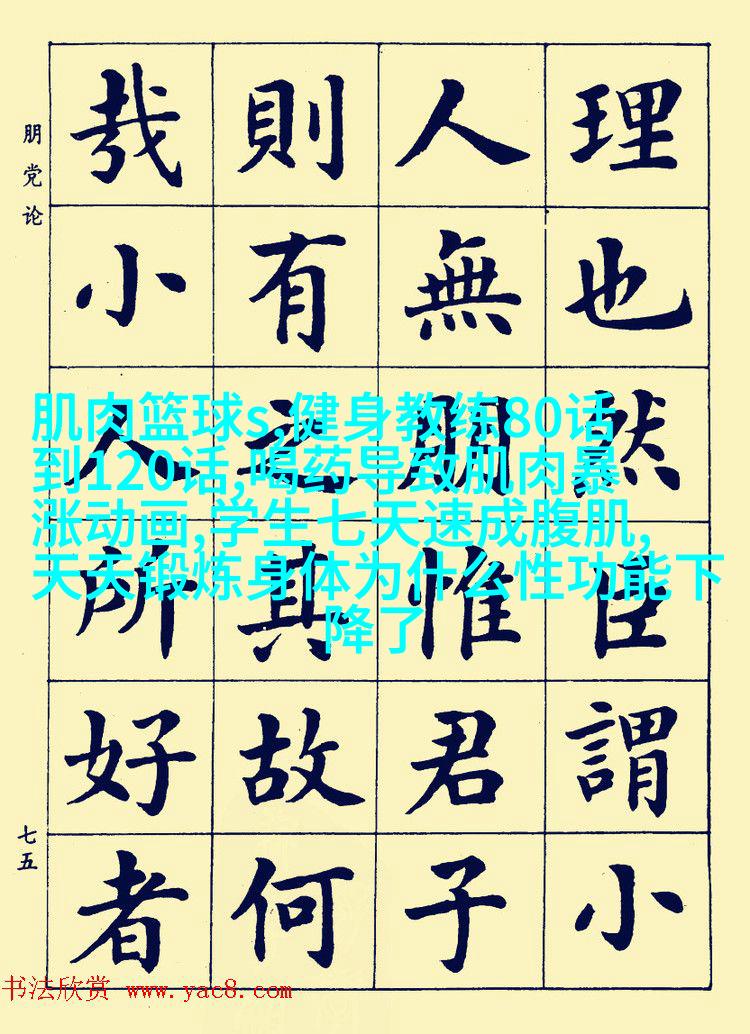 理也然臣謂小
人無朋惟君子
則有之其故何
哉小人所好者
朋党论
七五
肌肉篮球s,健身教练80话
到120话,喝药导致肌肉暴
涨动画,学生七天速成腹肌,
天天锻炼身体为什么性功能下
降了
书法欣赏 www.yac8.com